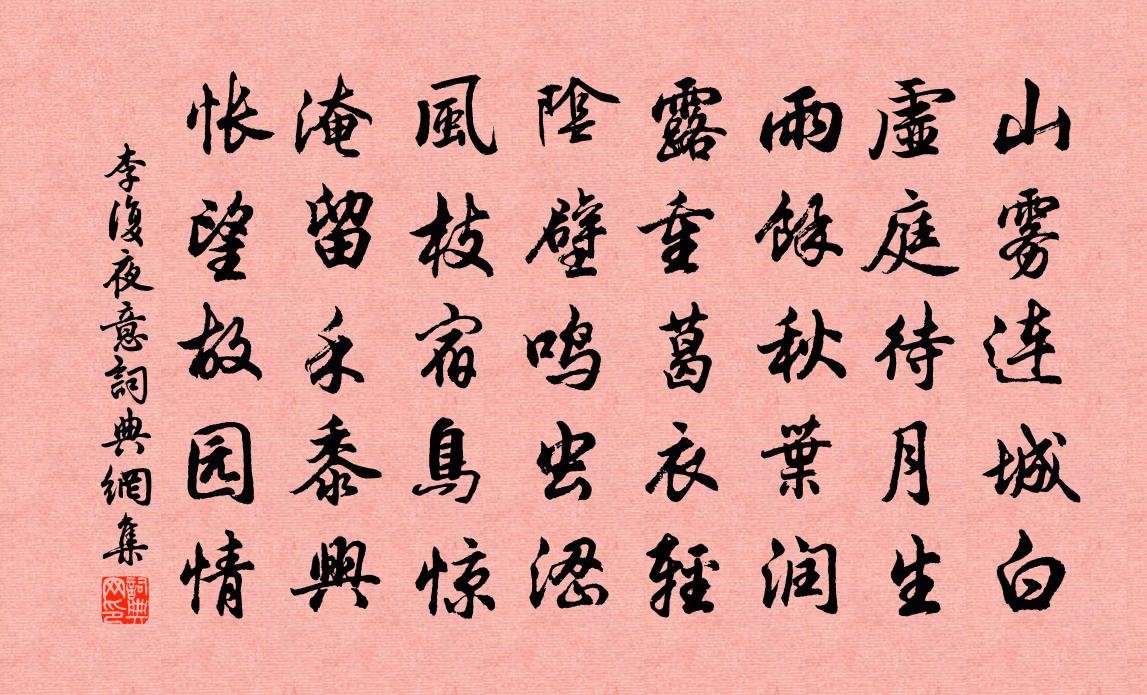 山雾连城白
虚庭待月生
雨餘秋葉润
露重葛衣輕
陰壁鸣虫涩
風枝宿鳥惊
淹留禾黍興
怅望故园情
李復夜意詞典網集
詞典网印